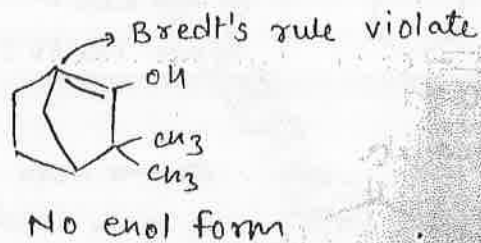 Bredt's rule violate
OH
CH3
CH3
No enol form